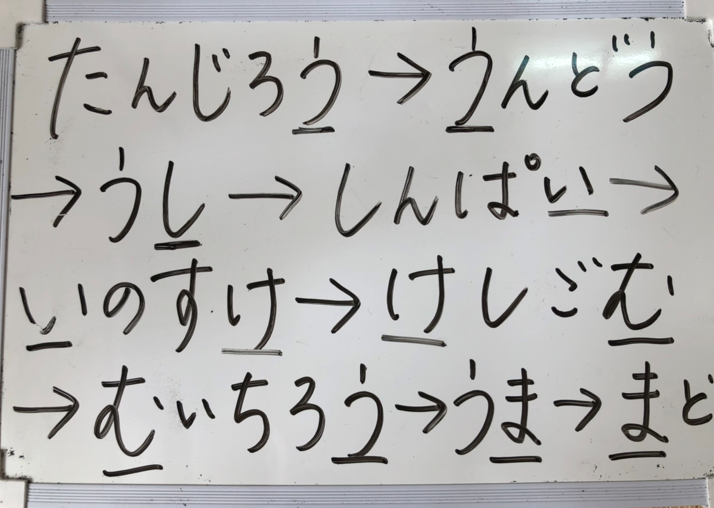 たんじろう→うんどう
→うし→しんぱい→
いのすけ→けしごむ
→むいちろう→うま→まど